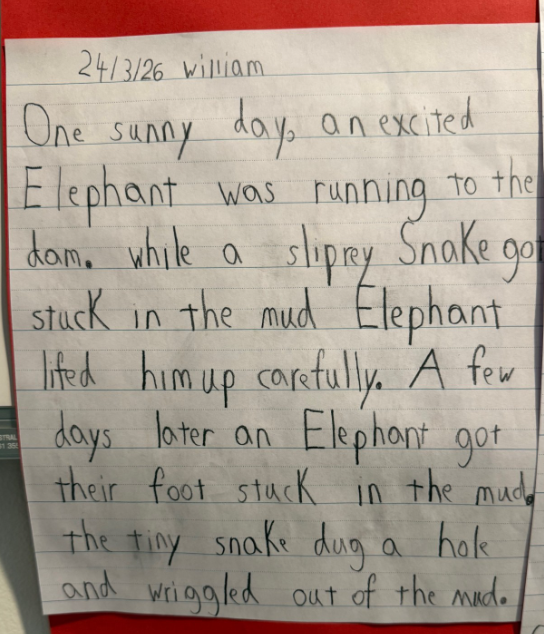 24/3/26 william
One sunny day, an excited
Elephant was running to the
dam. while a sliprey Snake got
stuck in the mud Elephant
lifed him up carefully. A few
days later an Elephant got
their foot stuck in the mud.
the tiny snake dug a hole
and wriggled out of the mud.